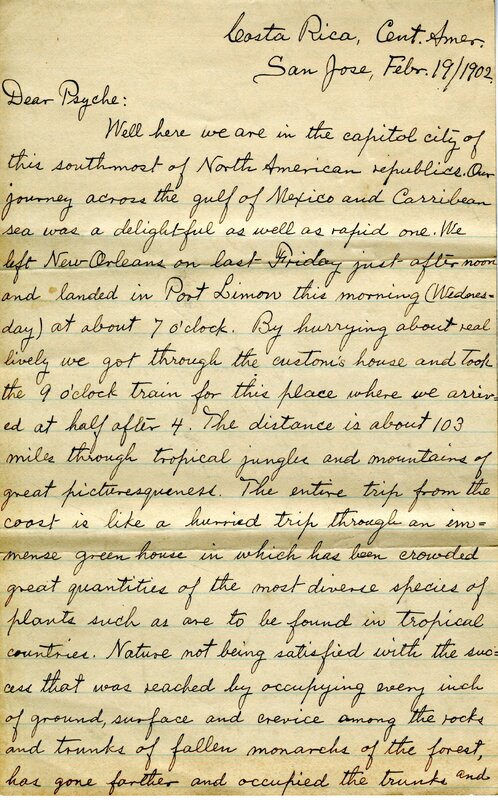 Costa Rica, Cent. Amer.
San Jose, Febr. 19/1902.
Dear Psyche:
Well here we are in the capitol city of
this southmost of North American republics. Our
journey across the gulf of Mexico and Carribean
sea was a delightful as well as rapid one. We
left New Orleans on last Friday just after noon
and landed in Port Limon this morning (Wednes-
day) at about 7 o'clock. By hurrying about real
lively we got through the custom's house and took
the 9 o'clock train for this place where we arriv-
ed at half after 4. The distance is about 103
miles through tropical jungles and mountains of
great picturesqueness. The entire trip from the
coast is like a hurried trip through an im-
mense green house in which has been crowded
great quantities of the most diverse species of
plants such as are to be found in tropical
countries. Nature not being satisfied with the suc-
cess that was reached by occupying every inch
of ground, surface and crevice among the rocks
and trunks of fallen monarchs of the forest,
has gone farther and occupied the trunks and